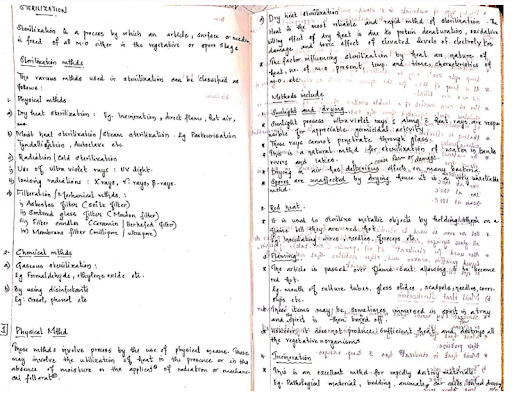 STERILIZATION
Sterilization is a process by which an article, surface or media
is freed of all m.o either in the vegetative or spore stage
Sterilization mthds
The various mthds used in sterilization can be classified as
follows:
1. Physical mthds
a) Dry heat sterilization: Eg. Incineration, direct flame, hot air,
b) Moist heat sterilization /Steam sterilization. Eg Pasteurisation
Tyndallisation, Autoclave etc
c) Radiation/ Cold sterilization
i) Use of ultra violet rays: UV light.
ii) Ionizing radiations: X rays, γ rays, β-rays.
d) Filtration /Mechanical mthds:
i) Asbestos filter (Seitz filter)
ii) Sintered glass filter (Morton filter)
iii) Filter candles (Ceramic / Berkefed filter)
iv) Membrane filter (millipore / ultrapore)
2. Chemical mthds
a) Gaseous sterilization:
Eg Formaldehyde, ethylene oxide etc.
b) By using disinfectants
Eg: Cresol, phenol etc
Physical Mthd
These mthds involve process by the use of physical means. These
may involve the utilization of heat in the presence or in the
absence of moisture or the application of radiation or mechani
cal filtration.
a) Dry heat sterilization
Heat is the most reliable and rapid mthd of sterilization. The
killing effect of dry heat is due to protein denaturation, oxidative
damage and toxic effect of elevated levels of electrolytes
The factor influencing sterilization by heat are, nature of
heat, no. of m.o present, temp. and time, characteristics of
m.o. etc.
Methods include
1. Sunlight and drying
Sunlight process ultra violet rays & along heat rays are respon
sible for appreciable germicidal activity
These rays cannot penetrate through glass.
This is a natural mthd for sterilization of water in tanks
rivers and lakes.
Drying in air has deleterious effects on many bacteria
Spores are unaffected by drying hence it is unreliable
mthd
2. Red heat.
It is used to sterilize metallic objects by holding them on a
flame till they are red hot.
Eg. Inoculating wires, needles, forceps etc.
3. Flaming
The article is passed over flame without allowing it to become
red hot.
Eg. mouth of culture tubes, glass slides, scalpels, needles,
These items may be sometimes immersed in spirit in a tray
and spirit is then burnt off.
However it does not produce sufficient heat and destroys all
the vegetative organisms
4. Incineration
This is an excellent mthd for rapidly destroying materials
Eg. Pathological material, bedding, animal